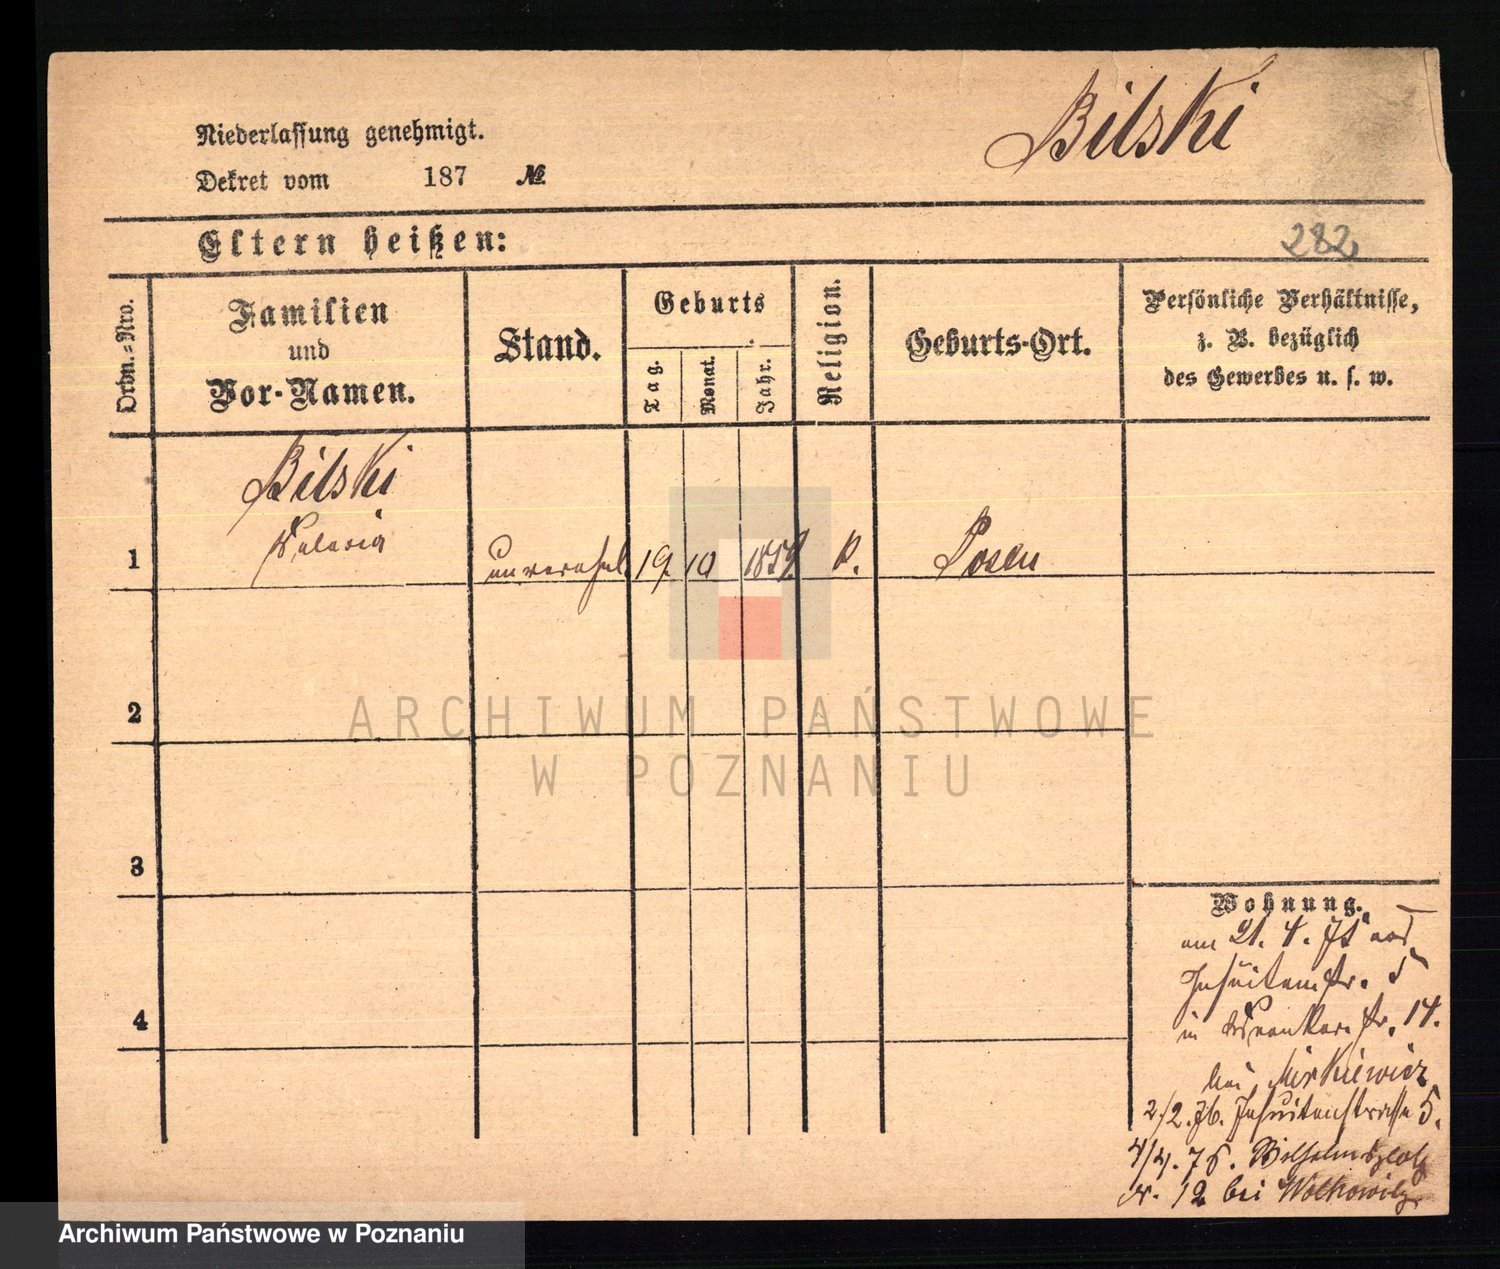 Bilski
Niederlassung genehmigt.
Dekret vom 187 №
Eltern heißen:
282
Ordn.=Nro.
Familien
und
Vor-Namen.
Stand.
Geburts
Tag.
Monat.
Jahr.
Religion.
Geburts-Ort.
Persönliche Verhältnisse,
z. B. bezüglich
des Gewerbes u. s. w.
Bilski
Valeria
1 unverehel. 19 10 1859 k. Posen
2
3
4
Wohnung.
am 21. 4. 75
Jesuitenstr. 5
in str. 14.
bei Mirkiewicz
2/2. 76. Jesuitenstrasse 5.
4/4. 76. Wilhelmsplatz
Nr. 12 bei Wolkowitz
ARCHIWUM PAŃSTWOWE
W POZNANIU
Archiwum Państwowe w Poznaniu